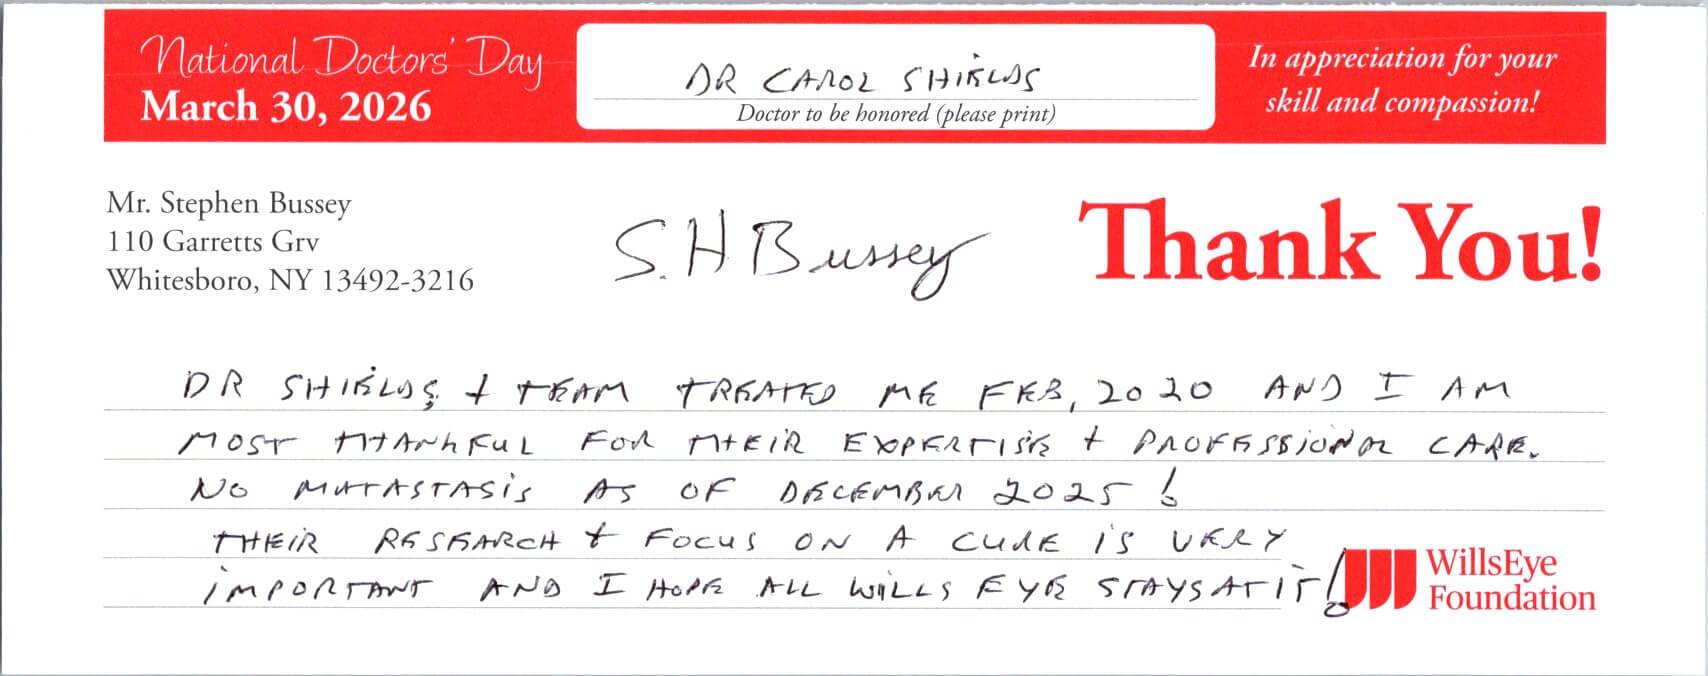 National Doctors' Day
March 30, 2026
DR CAROL SHIELDS
Doctor to be honored (please print)
In appreciation for your
skill and compassion!
Mr. Stephen Bussey
110 Garretts Grv
Whitesboro, NY 13492-3216
S. H Bussey
Thank You!
DR SHIELDS + TEAM TREATED ME FEB, 2020 AND I AM
MOST THANKFUL FOR THEIR EXPERTISE + PROFESSIONAL CARE.
NO MUTASTASIS AS OF DECEMBER 2025!
THEIR RESEARCH & FOCUS ON A CURE IS VERY
IMPORTANT AND I HOPE ALL WILLS EYE STAYS AT IT!
WillsEye
Foundation